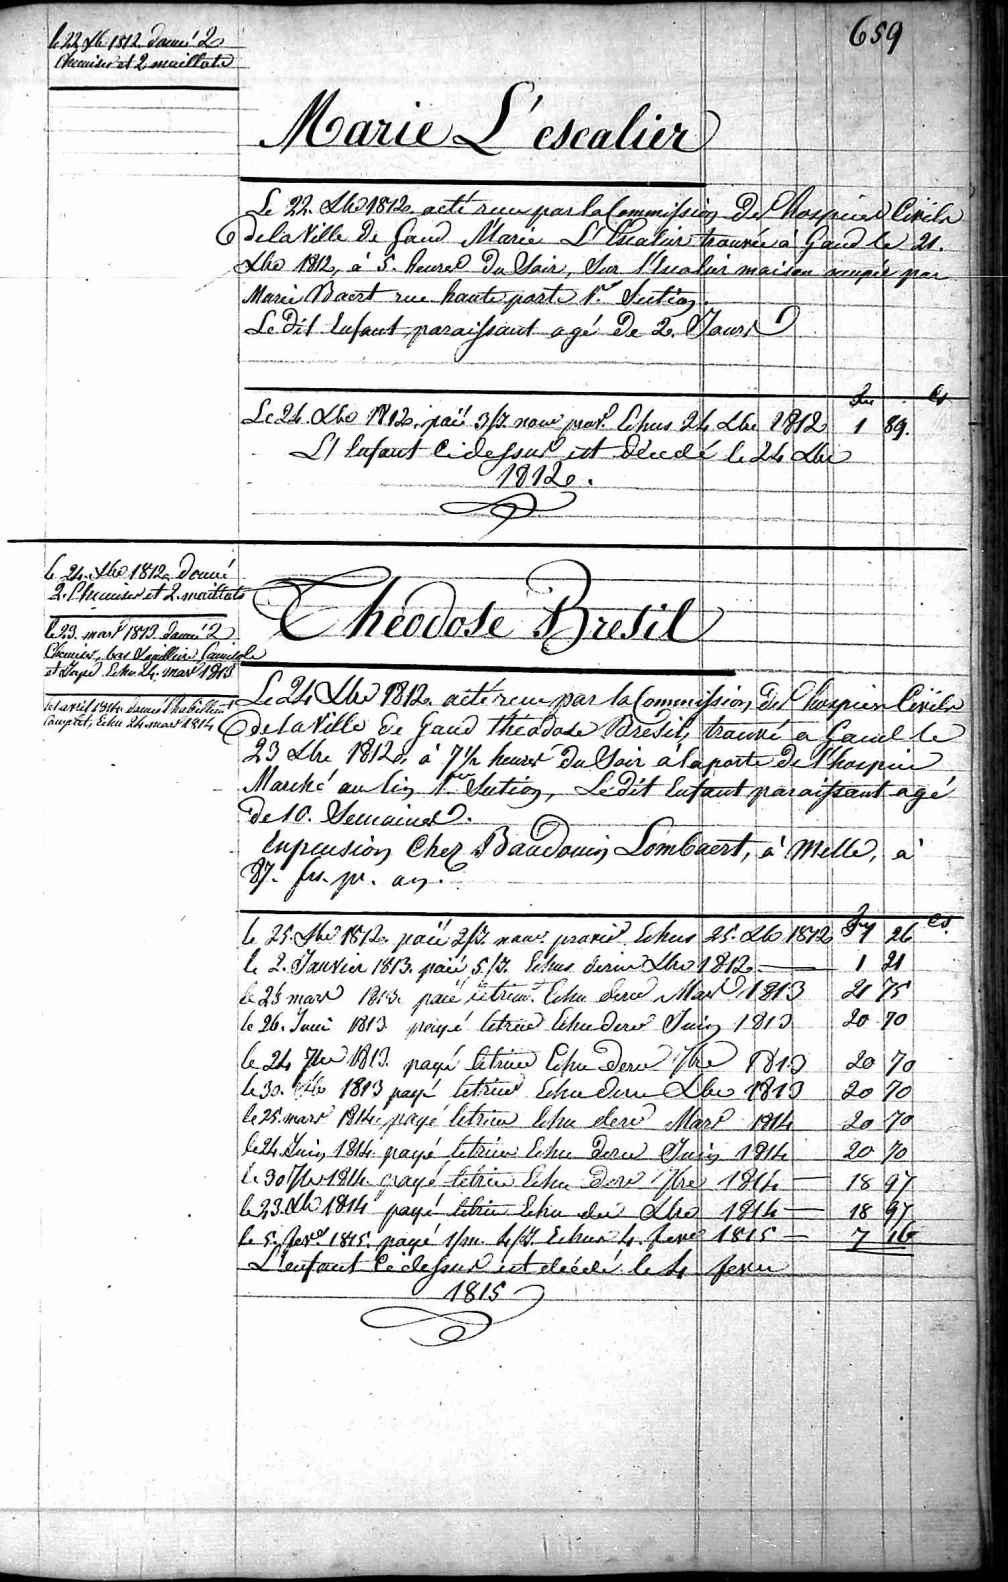 659
le 22 Xb 1812 donné 2
Chemises et 2 maillots
Marie L'escalier
Le 22. Xbre 1812. a été recu par la Commission Des hospices Civils
de la Ville De Gand Marie L'Escalier trouvée à Gand le 21.
Xbre 1812, à 5. heures Du Soir, Sur l'Escalier maison occupée par
Marie Baert rue haute porte 1.re Section.
Le Dit Enfant paraissant agé De 2. Jours
frs cs
Le 24. Xbre 1812, paié 3/J. nour prov.e Echus 24 Xbre 1812 1 89.
L'Enfant Cidessus est Décedé le 24 Xbre
1812.
le 24. Xbre 1812 Donné
2. Chemises et 2. maillots
le 23. mars 1813. donné 2
Chemises, bas Camisole
et Jupe Echu 24. mars 1813
le 1 avril 1814 donné l'habillemt
Complet, Echu 24. mars 1814
Théodose Bresil
Le 24 Xbre 1812. a été recu par la Commission Des hospices Civils
de la Ville de Gand théodose Bresil, trouvé a Gand le
23 Xbre 1812, à 7 1/2 heures du Soir à la porte De l'hospice
Marché au lin 1.re Section, Le dit Enfant paraissant agé
de 10. Semaines.
En pension Chez Baudouin Lombaert, à Melle, à
87. frs. pr. an.
frs cs.
le 25. Xbre 1812. paié 2/J. nour. provis. Echus 25. Xb 1812 1 26
le 2. Janvier 1813. paié 5/J. Echus dernier Xbre 1812 — 1 21
le 23 mars 1813. paié letrim.e Echu dere Mars 1813 21 75
le 26. Juin 1813 payé letrim Echu dere Juin 1813 20 70
le 24 7bre 1813. payé letrim Echu Dere 7bre 1813 20 70
le 30. Xbre 1813 payé letrim Echu dere Xbre 1813 20 70
le 25. mars 1814. payé letrim Echu dere Mars 1814 20 70
le 24 Juin 1814. payé letrim Echu Dere Juin 1814 20 70
le 30 7bre 1814. payé letrim Echu Dere 7bre 1814 — 18 97
le 23. Xbr 1814 payé letrim Echu der Xbre 1814 — 18 97
le 5. fevr 1815. payé 1/m. 4/J. Echus 4. fevr 1815 — 7 16
L'enfant Cidessus est décédé le 4 fevrier
1815